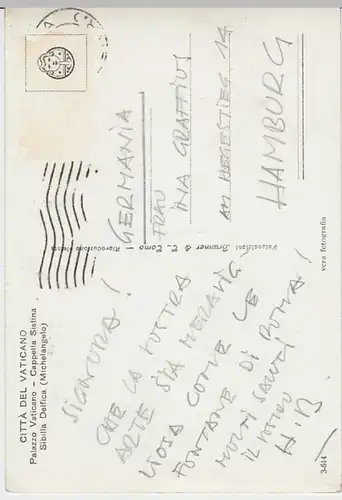 CITTÀ DEL VATICANO
Palazzo Vaticano – Cappella Sistina
Sibilla Delfica (Michelangelo)
SIGNORA!
CHE LA VOSTRA
ARTE SIA MERAVIG
LIOSA COME LE
FONTANE DI ROMA!
MOLTI SALUTI
IL VOSTRO
H.B
Fotocelere Brunner & C. Como - Riproduzione vietata
GERMANIA
FRAU
INA GRAFFIUS
AM HEGESTIEG 14
HAMBURG
vera fotografia
3-514